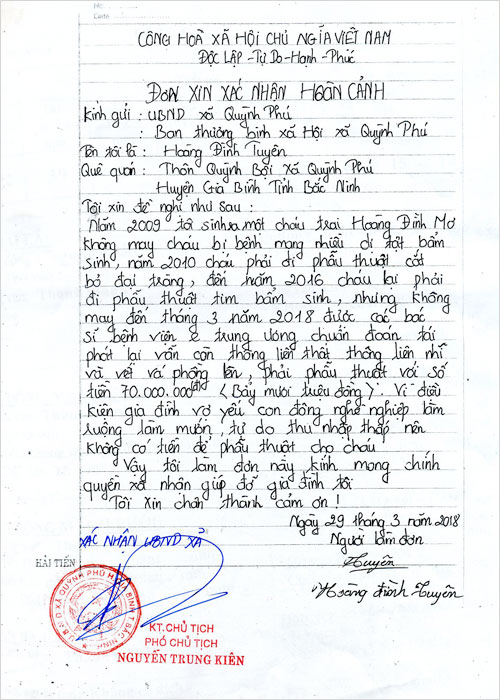 No:
Date
CÔNG HOÀ XÃ HỘI CHỦ NGĨA VIỆT NAM
ĐỘC LẬP - TỰ DO - HẠNH - PHÚC
ĐƠN XIN XÁC NHẬN HOÀN CẢNH
Kính gửi : UBND xã Quỳnh Phú
: Ban thương binh xã Hội xã Quỳnh Phú
Tên tôi là : Hoàng Đình Tuyên
Quê quán : Thôn Quỳnh Bội Xã Quỳnh Phú
Huyện Gia Bình Tỉnh Bắc Ninh
Tôi xin đề nghị như sau :
Năm 2009 tôi sinh ra một cháu trai Hoàng Đình Mơ
không may cháu bị bệnh mang nhiều di tật bẩm
sinh, năm 2010 cháu phải đi phẫu thuật cắt
bỏ đại tràng, đến năm 2016 cháu lại phải
đi phẫu thuật tim bẩm sinh, nhưng không
may đến tháng 3 năm 2018 được các bác
sĩ bệnh viện E trung ương chuẩn đoán tái
phát lại vẫn còn thông liên thất thông liên nhĩ
và vết vá phồng lên, phải phẫu thuật với số
tiền 70.000.000(đ) (Bảy mươi triệu đồng). Vì điều
kiện gia đình vợ yếu con đông nghề nghiệp làm
ruộng làm mướn, tự do thu nhập thấp nên
không có tiền để phẫu thuật cho cháu
Vậy tôi làm đơn này kính mong chính
quyền xã nhận giúp đỡ gia đình tôi
Tôi xin chân thành cảm ơn !
Ngày 29 tháng 3 năm 2018
XÁC NHẬN UBND XÃ
Người làm đơn
HẢI TIẾN
Tuyên
Hoàng Đình Tuyên
U.B.N.D XÃ QUỲNH PHÚ H. GIA BÌNH T. BẮC NINH
KT.CHỦ TỊCH
PHÓ CHỦ TỊCH
NGUYỄN TRUNG KIÊN